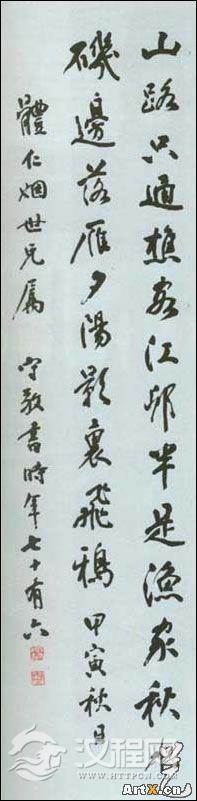 山路只通樵客江邨半是漁家秋
磯邊落雁夕陽影裏飛鴉 甲寅秋日
體仁姻世兄屬 守敬書時年七十有六
汉程网
HTTPCN.COM
ArtX.cn